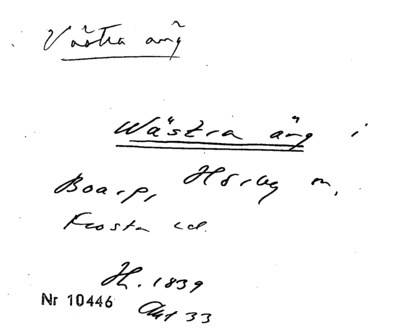 Västra äng
Wästra äng i
Boarp, Hörby sn,
Frosta hd.
Sk. 1839
Akt 33
Nr 10446